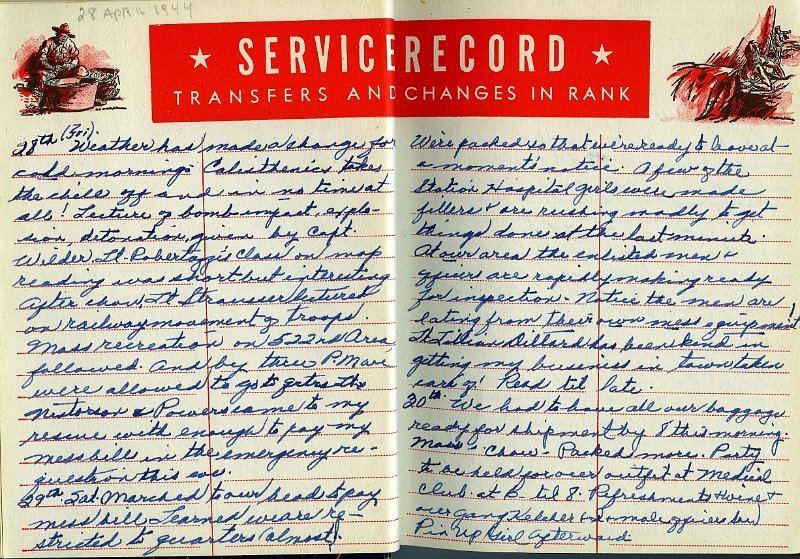 28 APRIL 1944
★ SERVICE RECORD ★
TRANSFERS AND CHANGES IN RANK
28th (Fri). Weather has made a change for
cold mornings. Calisthenics takes
the chill off and in no time at
all! Lecture of bomb impact, explo-
sion, detonation, given by Capt.
Wilder. Lt. Robertaggi's class on map
reading was short but interesting
After chow, Lt Strausser lectured
on railway movement of troops.
Mass recreation on 522nd Area
followed. And by three P.M. we
were allowed to go to qrtrs. Lts
Nistorson & Powers came to my
rescue with enough to pay my
mess bill in the emergency re-
quest on this eve.
29th. Sat. Marched to our head to pay
mess bill. Learned we are re-
stricted to quarters (almost).
We're packed so that we're ready to leave at
a moment's notice. A few of the
Station Hospital girls were made
fillers & are rushing madly to get
things done at the last minute.
At our area the enlisted men &
officers are rapidly making ready
for inspection - Notice the men are
eating from their own mess equipment!
Lt. Lillian Dillard has been kind in
getting my business in town taken
care of! Read til late.
30th. We had to have all our baggage
ready for shipment by 8 this morning.
Mass - Chow - Packed more. Party
to be held for over outfit at Medical
Club at 5 til 8. Refreshments & wine &
over gang Keleher & male officers
Pin Up Girl afterward